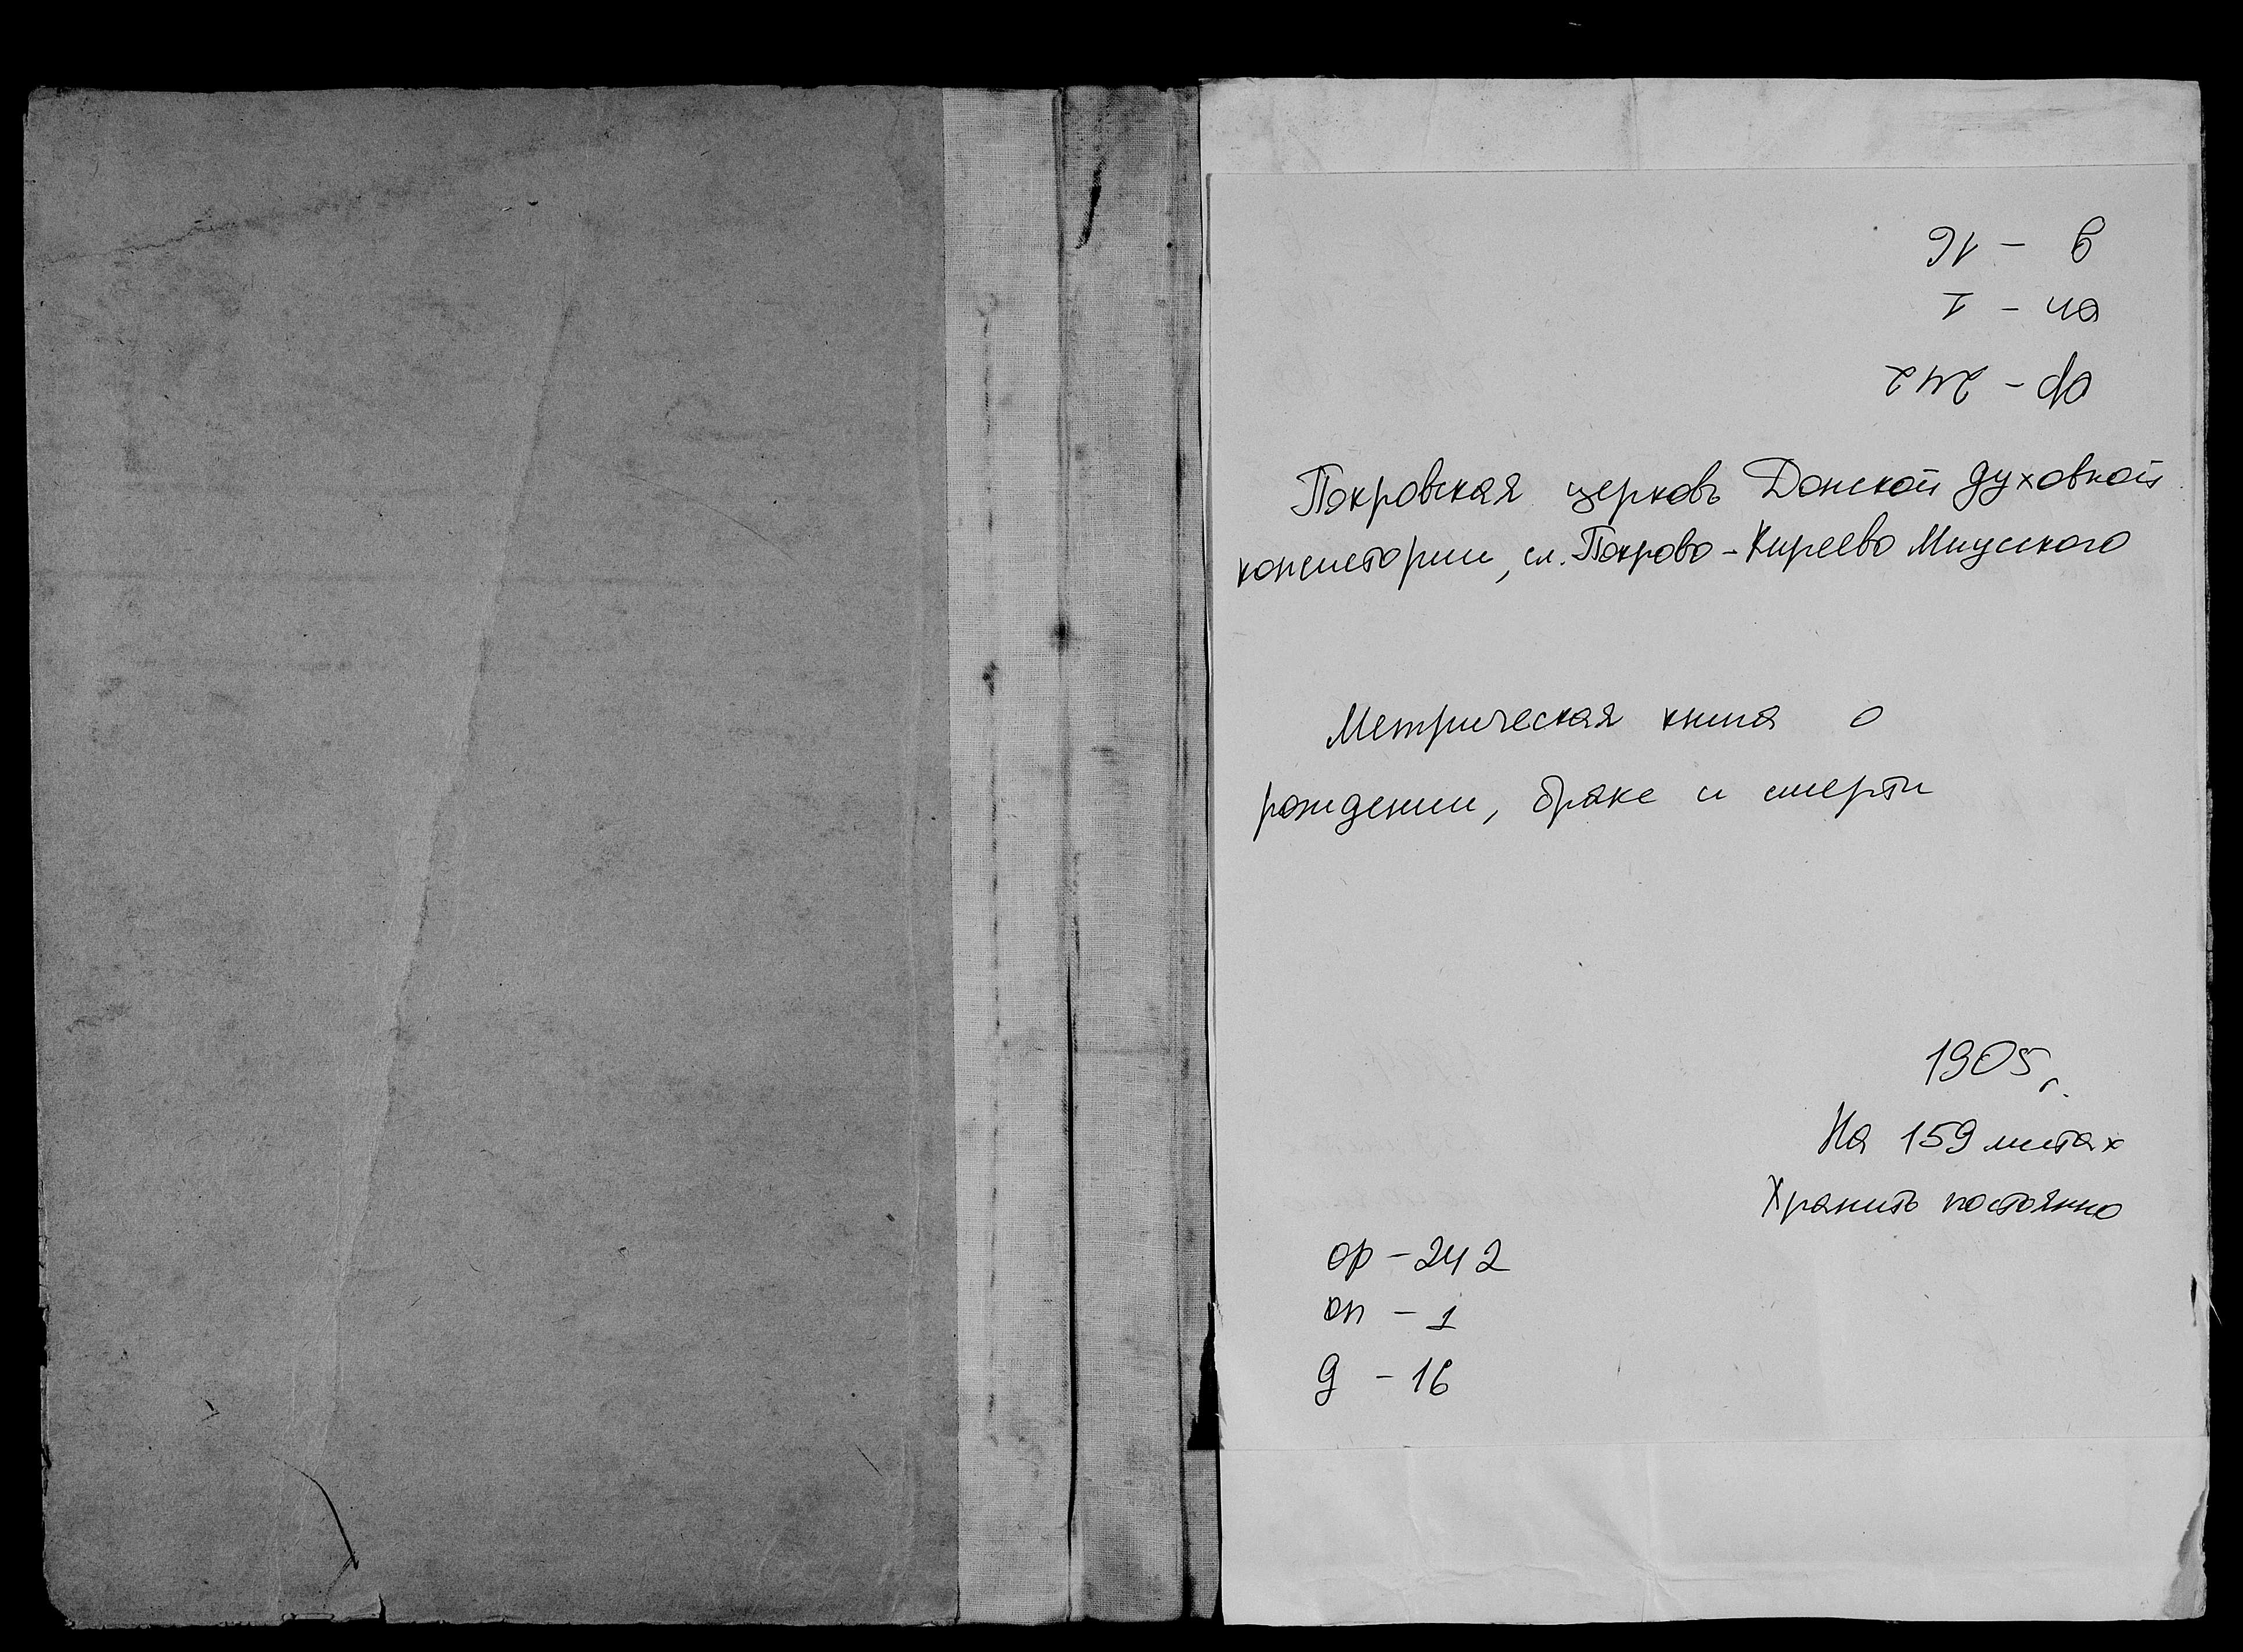 д - 16
оп - 1
ф - 242
Покровская церковь Донской духовной
консистории, сл. Покрово-Киреево Миусского
Метрическая книга о
рождении, браке и смерти
1905 г.
На 159 листах
Хранить постоянно
ф - 242
оп - 1
д - 16